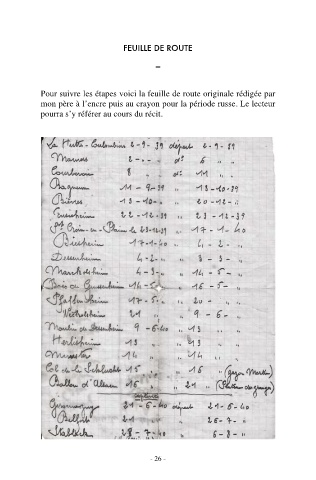 FEUILLE DE ROUTE
–
Pour suivre les étapes voici la feuille de route originale rédigée par
mon père à l'encre puis au crayon pour la période russe. Le lecteur
pourra s'y référer au cours du récit.
La 2-9-39 départ 2-9-39
Marnes 2 - " - " d° 6 " "
8 " d° 11 " "
Bagneux 11 - 9-39 " 13-10-39
Bièvres 13-10- " " 20-12- "
22-12-39 " 23-12-39
Ste Croix-en-Plaine le 23-12-39 " 17-1-40
Biesheim 17-1-40 " 4-2- "
Dessenheim 4-2- " " 3-3- "
Marckolsheim 4-3- " " 14-5- "
Bois de 14-5- " " 16-5- "
Pfaffenheim 17-5- " " 20- " "
21 " " 9-6- "
Moulin de 9-6-40 " 13 " "
Herlisheim 13 " " 13 " "
Munster 14 " " 14 " "
Col de la Schlucht 15 " " 16 " "
Ballon d'Alsace 16 " " 21 "
Giromagny 21-6-40 départ 21-6-40
Belfort 21 " " 26-7- "
Stablack 28-7-40 " 6-8- "
- 26 -